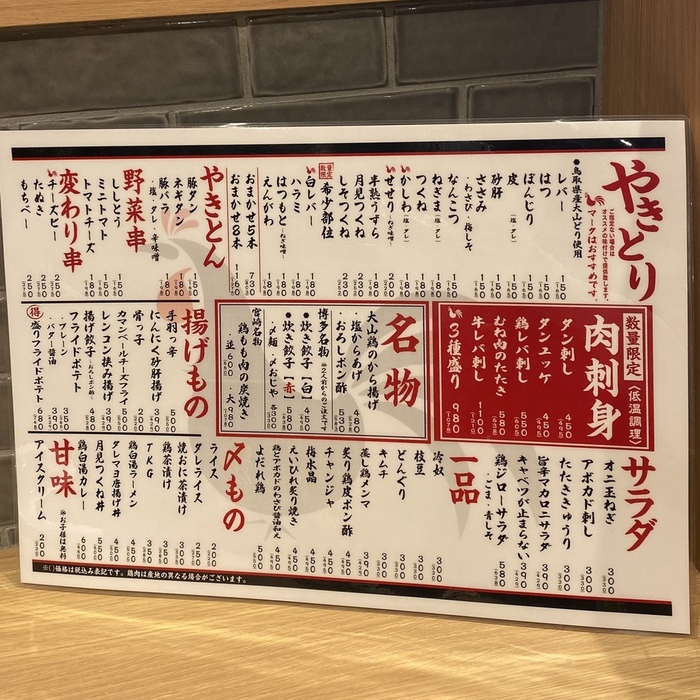 やきとり
ご指定ない場合は
オススメの味付けで提供致します。
マークはおすすめです。
●鳥取県産大山どり使用
レバー 150
はつ 150
ぼんじり 150
皮(塩 タレ) 150
砂肝 150
ささみ 150
・わさび・梅しそ
なんこつ 150
ねぎま(塩 タレ) 180
つくね 180
かしわ(塩 タレ) 180
せせり〜ねぎ味噌〜 180
半熟うずら 180
月見つくね 180
しそつくね 180
数量限定
希少部位
白レバー 180
ハラミ 180
はつもと〜ねぎ味噌〜 180
えんがわ 180
おまかせ5本 730
おまかせ8本 1160
やきとん
・塩・タレ・辛味噌
豚タン 180
ネギタン 180
豚バラ 180
野菜串
ししとう 150
ミニトマト 150
トマトチーズ 180
変わり串
チーズピー 250
たぬき 250
もちベー 250
数量限定
〈低温調理〉
肉刺身
タン刺し 450
タンユッケ 450
鶏レバ刺し 550
むね肉のたたき 580
牛レバ刺し 1100
3種盛り 980
名物
大山鶏のから揚げ
・塩からあげ 480
・おろしポン酢 530
博多名物 ※2人前からのご注文です
●炊き餃子【白】 480
●炊き餃子【赤】 580
・〆麺・〆おじや 各300
宮崎名物
鶏もも肉の炭焼き
・並 600 ・大 980
揚げもの
手羽っ辛 500
にんにく砂肝揚げ 390
骨っ子 200
カマンベールチーズフライ 500
レンコン挟み揚げ 390
揚げ餃子〜おろしポン酢〜 480
フライドポテト
・プレーン 350
・バター醤油 390
得
盛りフライドポテト 680
サラダ
オニ玉ねぎ 300
アボカド刺し 300
たたききゅうり 300
旨辛マカロニサラダ 390
キャベツが止まらない 390
鶏ジローサラダ 580
・ごま・青しそ
一品
冷奴 300
枝豆 300
どんぐり 300
キムチ 300
蒸し鶏メンマ 390
炙り鶏皮ポン酢 450
チャンジャ 450
梅水晶 450
えいひれ炙り焼き 450
鶏とアボカドのわさび醤油和え 450
よだれ鶏 500
〆もの
ライス 200
タレライス 250
焼おに茶漬け 300
鶏茶漬け 300
TKG 350
鶏白湯ラーメン 450
タレマヨ唐揚げ丼 450
月見つくね丼 450
鶏白湯カレー 600
甘味
※お子様は無料
アイスクリーム 200
※()価格は税込み表記です。鶏肉は産地の異なる場合がございます。